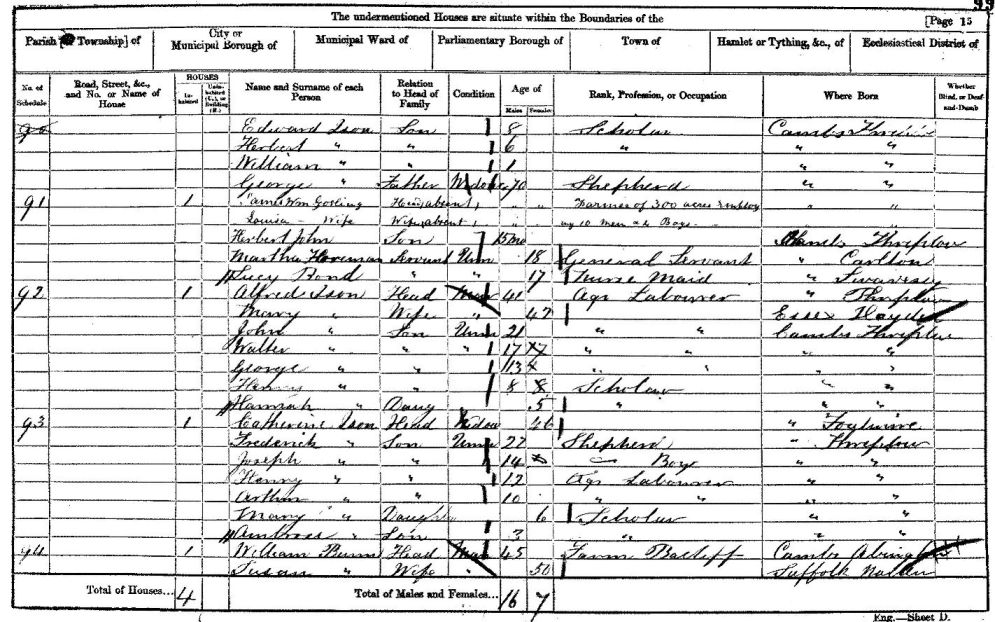 The undermentioned Houses are situate within the Boundaries of the
[Page 15
Parish [or Township] of
City or Municipal Borough of
Municipal Ward of
Parliamentary Borough of
Town of
Hamlet or Tything, &c., of
Ecclesiastical District of
No. of Schedule
Road, Street, &c., and No. or Name of House
HOUSES
Inhabited
Uninhabited (U.), or Building (B.)
Name and Surname of each Person
Relation to Head of Family
Condition
Age of
Males
Females
Rank, Profession, or Occupation
Where Born
Whether Blind, or Deaf-and-Dumb
90 Edward Ison Son 8 Scholar Cambs
Herbert " " 6 " " "
William " " 1 " "
George " Father Widower 70 Shepherd " "
91 1 James Wm Gosling Head, absent, " " Farmer of 300 acres employ " "
Louisa - Wife Wife, absent, " ing 10 men & 2 Boys
Herbert John Son 15 mo Cambs Threplow
Martha Servant Unm 18 General Servant " Carlton
Lucy Bond " " 17 Nurse Maid " Swavesey
92 1 Alfred Ison Head Mar 41 Agr Labourer " Threplow
Mary " Wife " 47 Essex Heydon
John " Son Unm 21 " " Cambs Threplow
Walter " " " 17 " " " "
George " " 13 " " " "
Henry " " 8 Scholar " "
Hannah " Daug 5 " " "
93 1 Catherine Ison Head Widow 46 "
Frederick " Son Unm 22 Shepherd " Threplow
Joseph " " 14 Boy " "
Henry " " 12 Agr Labourer " "
Arthur " " 10 " " " "
Mary " Daughter 6 Scholar " "
Ambrose " Son 3 " " "
94 1 William Head Mar 45 Farm Bailiff Cambs Abington
Susan " Wife " 50 Suffolk
Total of Houses... 4
Total of Males and Females... 16 7
Eng.—Sheet D.